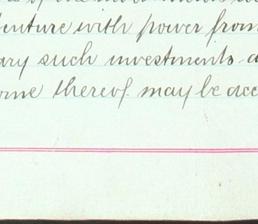 enture with power from
ary such investments
ome thereof may be acc